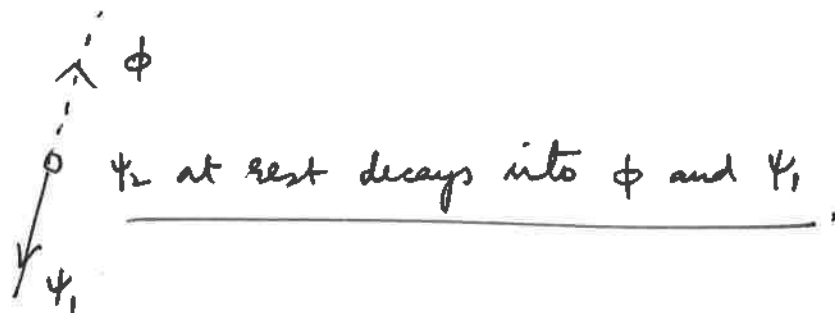 ϕ
ψ₂ at rest decays into ϕ and ψ₁.
ψ₁